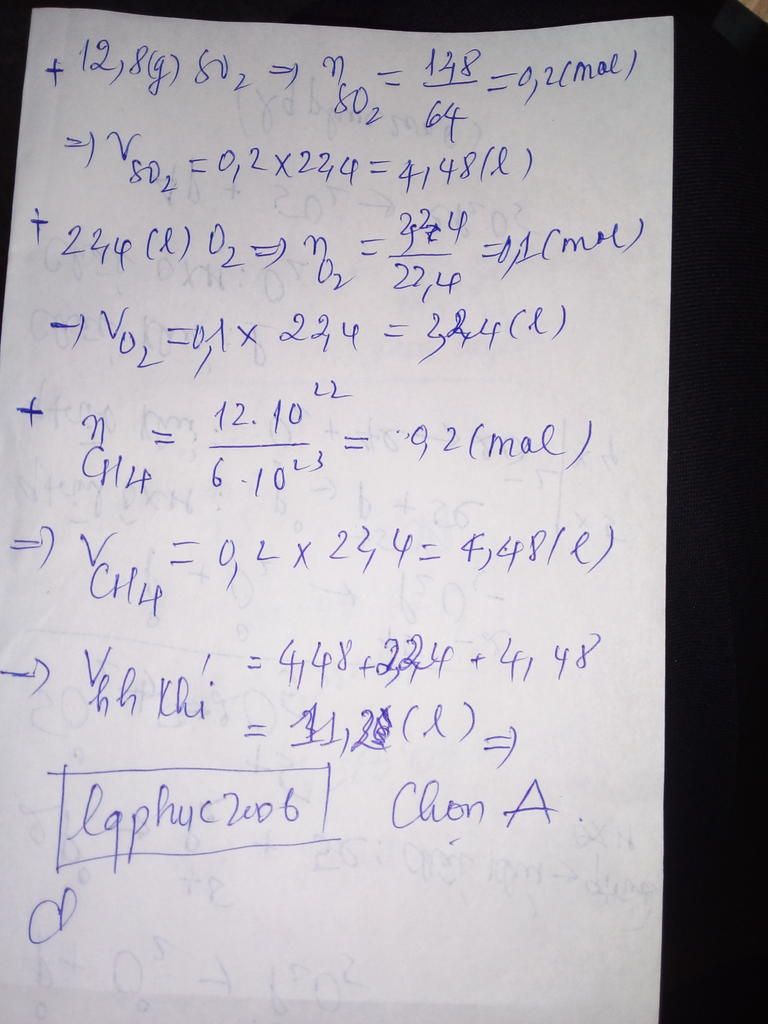 + 12,8(g) SO2 => nSO2 = 12,8/64 = 0,2(mol)
=> VSO2 = 0,2 x 22,4 = 4,48(l)
+ 22,4(l) O2 => nO2 = /22,4 = 0,1(mol)
-> VO2 = 0,1 x 22,4 = 2,24(l)
+ nCH4 = 12.10^22/6.10^23 = 0,2(mol)
=> VCH4 = 0,2 x 22,4 = 4,48(l)
-> Vhh khí = 4,48 + 2,24 + 4,48
= 11,2(l) =>
lqphuc2006 Chọn A.